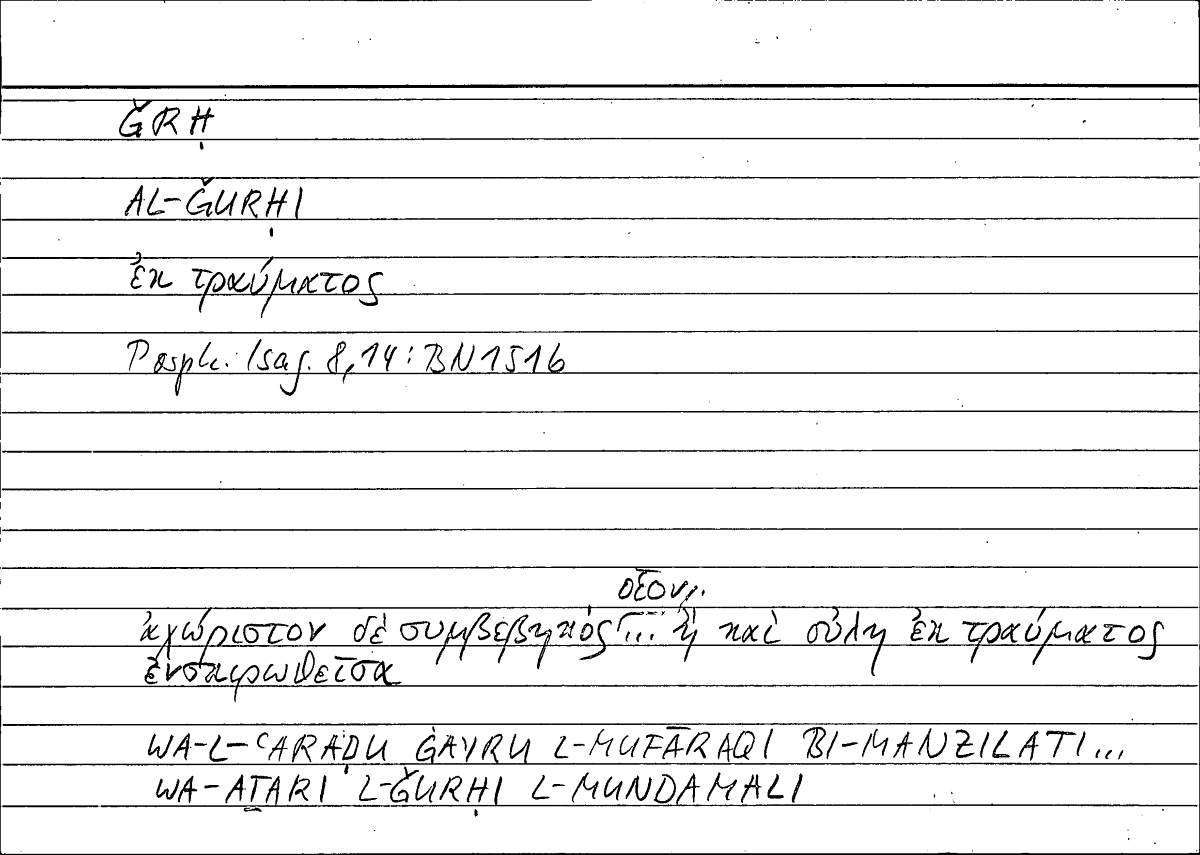 ǦRḤ
AL-ǦURḤI
ἐκ τραύματος
Porph. Isag. 8,14: BN1516
οἷον
ἀχώριστον δὲ συμβεβηκὸς ... ἢ καὶ οὐλὴ ἐκ τραύματος
ἐνσκιρωθεῖσα
WA-L-ʿARAḌU ĠAYRU L-MUFĀRAQI BI-MANZILATI...
WA-AṮARI L-ǦURḤI L-MUNDAMALI